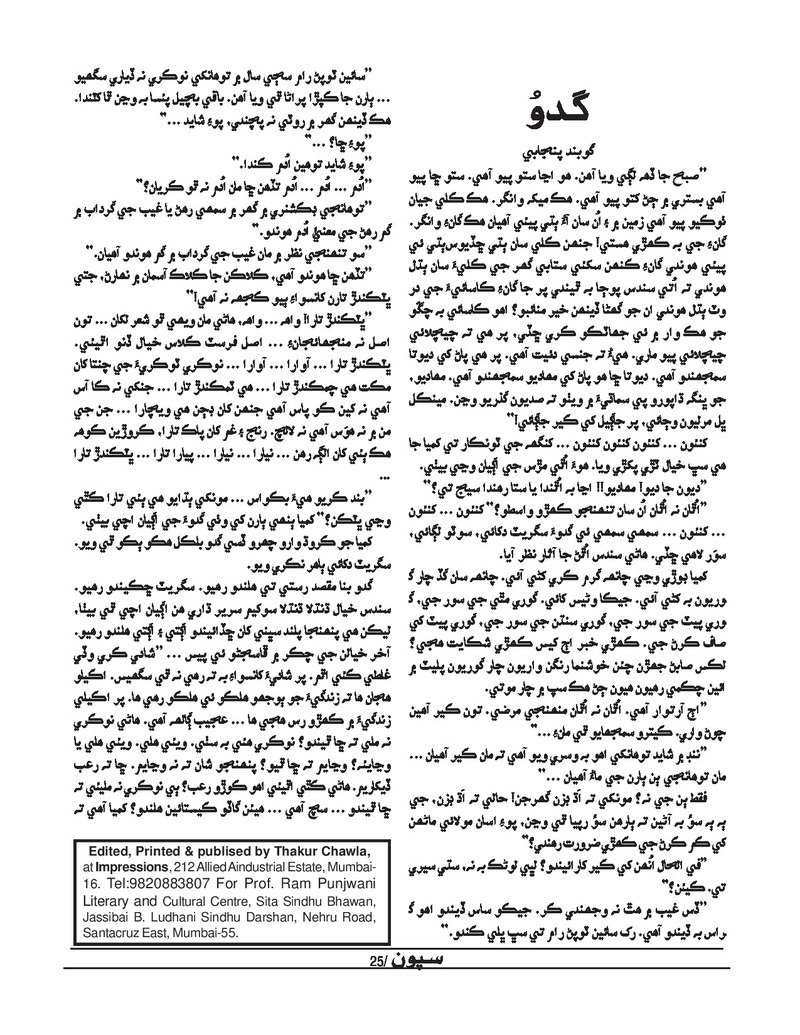 گدوُ
گوبند پنجابي
”صبح جا ڏهه لڳي ويا آهن. هو اڃا ستو پيو آهي. ستو ڇا پيو
آهي بستري ۾ ڄڻ کتو پيو آهي. هڪ ميکہ وانگر. هڪ ڪلي جيان
ٺوڪيو پيو آهي زمين ۾ ۽ اُن سان آئ ٻڌي پيئي آهيان هڪ گانءِ وانگر.
گانءِ جي به ڪهڙي هستي! جنهن ڪلي سان ٻڌي ڇڏيوس ٻڌي ئي
پيئي هوندي گانءِ ڪنهن سکئي ستابي گهر جي ڪليءَ سان ٻڌل
هوندي ته اُتي سندس پوڄا به ٿيندي پر جا گانءِ ڪاسائيءَ جي در
وٽ ٻڌل هوندي ان جو گهڻا ڏينهن خير مناٿبو؟ اهو ڪاسائي به چڱو
جو هڪ وار ۾ ئي جهاٽڪو ڪري ڇڏي، پر هي ته چيچلائي
چيچلائي پيو ماري. هيءُ ته جنسي دئيت آهي. پر هي پاڻ کي ديوتا
سمجهندو آهي. ديوتا ڇا هو پاڻ کي مهاديو سمجهندو آهي. مهاديو،
جو ڀنگہ ڏاپورو پي سماڌيءَ ۾ ويٺو ته صديون گذريو وڃن. مينڪل
ڀل مرليون وڄائي، پر جاڳيل کي ڪير جاڳائي!“
کنئون ... کنئون کنئون کنئون ... کنگهه جي ٺونڪار تي ڪميا جا
هي سڀ خيال ٽڙي پکڙي ويا. هوءَ اُٿي مڙس جي اڳيان وڃي بيٺي.
”ديون جا ديو! مهاديو!! اڃا به اُٿندا يا ستا رهندا سيج تي؟“
”اُٿان نه اُٿان اُن سان تنهنجو ڪهڙو واسطو؟“ کنئون ... کنئون
... کنئون ... سمهي سمهي ئي گدوءَ سگريٽ دکائي، سوٽو لڳائي،
سوَر لاهي ڇڏي. هاڻي سندس اُٿڻ جا آثار نظر آيا.
ڪميا ٻوڙي وڃي چانهه گرم ڪري کڻي آئي. چانهه سان گڏ چار گ
وريون به کڻي آئي. جيڪا وٺيس کائي. گوري مٿي جي سور جي، گ
وري پيٽ جي سور جي، گوري سنڌن جي سور جي، گوري پيٽ کي
صاف ڪرڻ جي. ڪهڙي خبر اڄ کيس ڪهڙي شڪايت هجي؟
لڪس صابڻ جهڙن چئن خوشنما رنگن واريون چار گوريون پليٽ ۾
ائين چمڪي رهيون هيون ڄڻ هڪ سڀ ۾ چار موتي.
”اڄ آرتوار آهي. اُٿان نه اُٿان منهنجي مرضي. تون ڪير آهين
چوڻ واري. ڪيترو سمجهايو ٿي مانءِ ...“
”ننڊ ۾ شايد توهانکي اهو به وسري ويو آهي ته مان ڪير آهيان ...
مان توهانجي ٻن ٻارن جي ماءُ آهيان ...“
فقط ٻن جي نه؟ مونکي ته اَڌ ڊزن گهرجن! حالي ته اَڌ ڊزن، جي
ٻه ٻه سؤ به آڻين ته ٻارهن سؤ رپيا ٿي وڃن، پوءِ اسان مولائي ماڻهن
کي ڪم ڪرڻ جي ڪهڙي ضرورت رهندي؟“
”في الحال اُنهن کي ڪير کارائيندو؟ لڀي لوڻڪ به نه، سڌي سيري
تي. ڪيئن؟“
”ڏس غيب ۾ هٿ نه وجهندي ڪر. جيڪو ساس ڏيندو اهو گ
راس به ڏيندو آهي. رک سائين ٽوپڻ رام تي سڀ ڀلي ڪندو.“
”سائين ٽوپڻ رام سڄي سال ۾ توهانکي نوڪري نه ڏياري سگهيو
... ٻارن جا ڪپڙا پراڻا ٿي ويا آهن. باقي بچيل پئسا به وڃن ٿا کٽندا.
هڪ ڏينهن گهر ۾ روٽي نه پچندي، پوءِ شايد ...“
”پوءِ ڇا؟ ...“
”پوءِ شايد توهين اُدم ڪندا.“
”اُدم ... اُدم ... اُدم تڏهن ڇا مان اُدم نه ٿو ڪريان؟“
”توهانجي ڊڪشنري ۾ گهر ۾ سمهي رهڻ يا غيب جي گرداب ۾
گم رهڻ جي معنيٰ اُدم هوندو.“
”سو تنهنجي نظر ۾ مان غيب جي گرداب ۾ گم هوندو آهيان.“
”تڏهن ڇا هوندو آهي، ڪلاڪن جا ڪلاڪ آسمان ۾ نهارڻ، جتي
ڀٽڪندڙ تارن کانسواءِ ٻيو ڪجهه نه آهي!“
”ڀٽڪندڙ تارا! واهه ... واهه، هاڻي مان ويهي ٿو شعر لکان ... تون
اصل نه منجهائجانءِ ... اصل فرسٽ ڪلاس خيال ڏنو اٿيئي.
ڀٽڪندڙ تارا ... آوارا ... آوارا ... نوڪري ٽوڪريءَ جي چنتا کان
مڪت هي چمڪندڙ تارا ... هي ٽمڪندڙ تارا ... جنکي نه ڪا آس
آهي نه ڪين ڪو پاس آهي جنهن کان بچن هي ويچارا ... جن جي
من ۾ نه هوَس آهي نه لالچ. رنج ۽ غم کان پاڪ تارا، ڪروڙين ڪوهه
هڪ ٻئي کان الڳ رهن ... نيارا ... نيارا ... پيارا تارا ... ڀٽڪندڙ تارا
...
”بند ڪريو هيءَ بڪواس ... مونکي ٻڌايو هي ٻئي تارا ڪٿي
وڃي ڀٽڪن؟“ ڪميا پنهي ٻارن کي وٺي گدوءَ جي اڳيان اچي بيٺي.
ڪميا جو ڪروڌ وارو چهرو ڏسي گدو بلڪل هڪو ٻڪو ٿي ويو.
سگريٽ دکائي ٻاهر نڪري ويو.
گدو بنا مقصد رستي تي هلندو رهيو. سگريٽ ڇڪيندو رهيو.
سندس خيال ڦنڊلا ڦنڊلا سوکيم سرير ڌاري هن اڳيان اچي ٿي بيٺا،
ليڪن هي پنهنجا پلند سڀني کان ڇڏائيندو اڳتي ۽ اڳتي هلندو رهيو.
آخر خيالن جي چڪر ۾ ڦاسجڻو ئي پيس ... ”شادي ڪري وڏي
غلطي ڪئي اٿم. پر شاديءَ کانسواءِ به ته رهي نه ٿي سگهيس. اڪيلو
هجان ها ته زندگيءَ جو ٻوجهو هلڪو ئي هلڪو رهي ها. پر اڪيلي
زندگيءَ ۾ ڪهڙو رس هجي ها ... عجيب ڳالهه آهي. هاڻي نوڪري
نه ملي ته ڇا ٿيندو؟ نوڪري هئي به سٺي. ويئي هلي. ويئي هلي يا
وڃايئه؟ وڃايم ته ڇا ٿيو؟ پنهنجو شان ته نه وڃايم. ڇا ته رعب
ڏيکاريم. هاڻي ڪٿي اٿيئي اهو کوڙو رعب؟ ٻي نوڪري نه مليئي ته
ڇا ٿيندو ... سچ آهي ... هيئن گاڏو ڪيستائين هلندو؟ ڪميا آهي ته
Edited, Printed & publised by Thakur Chawla,
at Impressions, 212 Allied Aindustrial Estate, Mumbai-
16. Tel:9820883807 For Prof. Ram Punjwani
Literary and Cultural Centre, Sita Sindhu Bhawan,
Jassibai B. Ludhani Sindhu Darshan, Nehru Road,
Santacruz East, Mumbai-55.
سپون /25